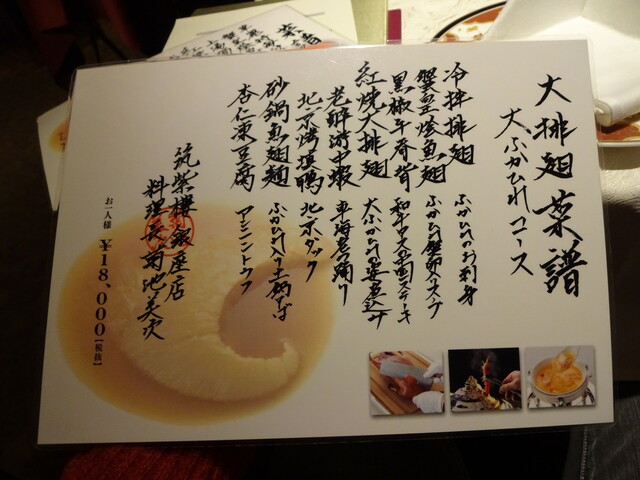 大排翅菜譜
大ふかひれコース
冷拌排翅 ふかひれのお刺身
蟹皇燴魚翅 ふかひれ蟹卵入りスープ
黒椒牛脊背 和牛ロースの黒胡椒ステーキ
紅焼大排翅 大ふかひれの姿煮込み
老酔游中蝦 車海老の踊り
北京烤填鴨 北京ダック
砂鍋魚翅麺 ふかひれ入り土鍋そば
杏仁凍豆腐 アンニントウフ
筑紫樓銀座店
料理長 菊池美次
お一人様 ¥18,000【税抜】